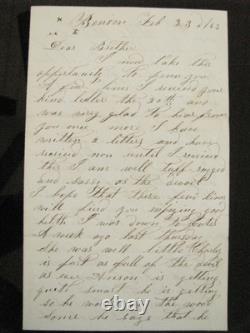 Benson Feb 23 /63
Dear Brother
I now take the
opportunity to penn you
A few lines I received your
kind letter the 20th and
was very glad to hear from
you once more I have
written 2 letters and have
received non until I received
this I am well tuff rugged
and sassy as the devil
I hope that these few lines
will find you enjoying good
health I was down to
A week ago last thursday
she was well little Charles
is fat as full of the devil
as ever is getting
quite smart he is getting
so he works in the wood
some he says that he